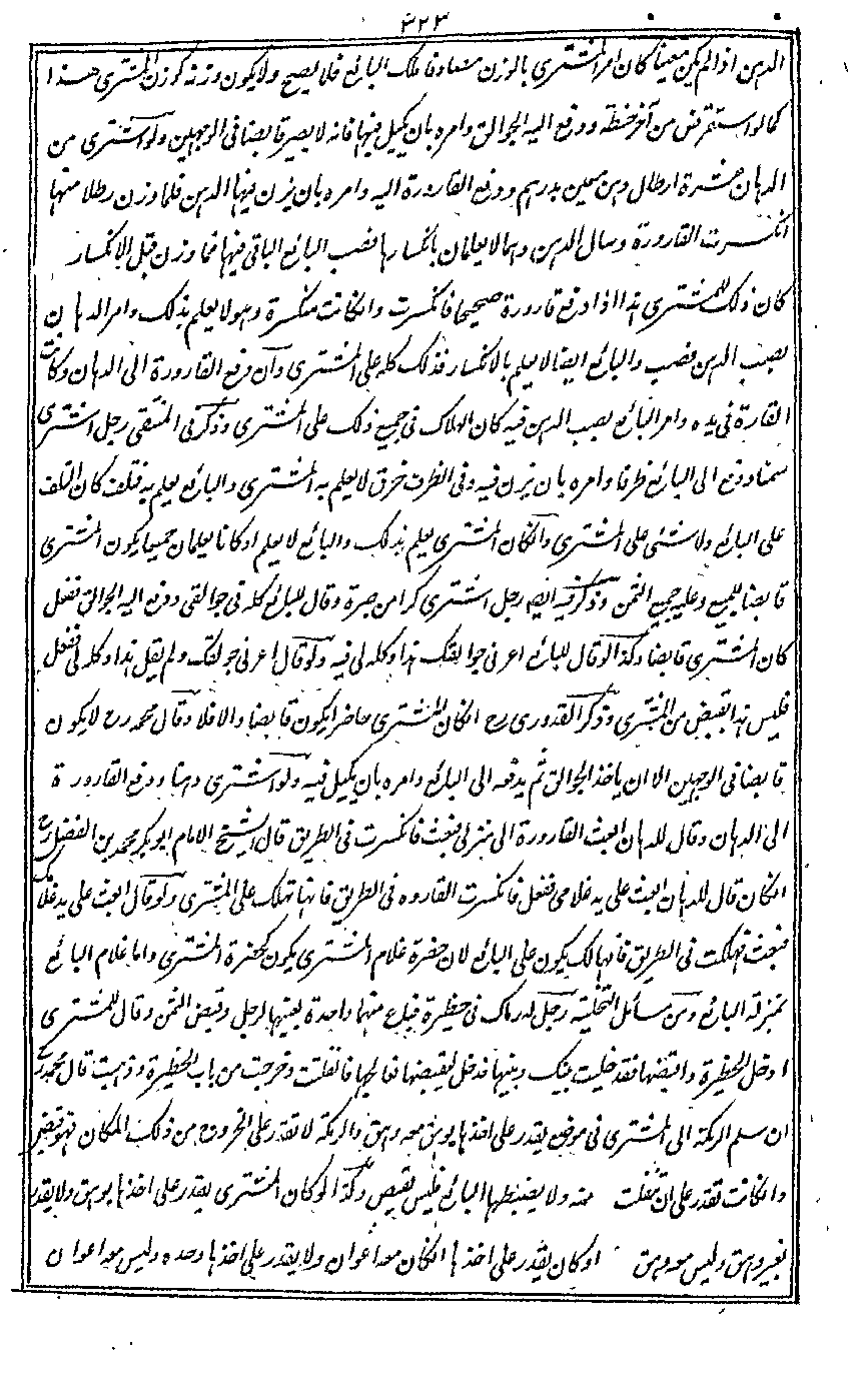 ٣٢٣
الدهن اذا لم يكن معينا كان امر المشتري بالوزن مصادفا ملك البائع فلا يصح ولا يكون وزنه كوزن المشتري هذا
كما لو استقرض من آخر حنطة ودفع اليه الجوالق وامره بان يكيل فيها فانه لا يصير قابضا في الوجهين ولو اشترى من
الدهان عشرة ارطال دهن معين بدرهم ودفع القارورة اليه وامره بان يزن فيها الدهن فلما وزن رطلا منها
انكسرت القارورة وسال الدهن وهما لا يعلمان بانكسارها فصب البائع الباقي فيها فما وزن قبل الانكسار
كان ذلك للمشتري هذا اذا دفع قارورة صحيحا فانكسرت وانكانت منكسرة وهو لا يعلم بذلك وامر الدهان
بصب الدهن فصب والبائع ايضا لا يعلم بالانكسار فذلك كله على المشتري وان دفع القارورة الى الدهان وكانت
القارة في يده وامر البائع بصب الدهن فيه كان الهلاك في جميع ذلك على المشتري وذكر في المنتقى رجل اشترى
سمنا ودفع الى البائع ظرفا وامره بان يزن فيه وفي الظرف خرق لا يعلم به المشتري والبائع يعلم به فتلف كان التلف
على البائع ولا شئ على المشتري وانكان المشتري يعلم بذلك والبائع لا يعلم او كانا يعلمان جميعا يكون المشتري
قابضا للمبيع وعليه جميع الثمن وذكر فيه ايضا رجل اشترى كرا من صبرة وقال للبائع كله في جوالقي ودفع اليه الجوالق ففعل
كان المشتري قابضا وكذا لو قال للبائع اعرني جوالقك هذا وكله لي فيه ولو قال اعرني جوالقك ولم يقل هذا وكله لي ففعل
فليس هذا بقبض من المشتري وذكر القدوري رح انكان المشتري حاضرا يكون قابضا والا فلا وقال محمد رح لا يكون
قابضا في الوجهين الا ان ياخذ الجوالق ثم يدفعه الى البائع وامره بان يكيل فيه ولو اشترى دهنا ودفع القارورة
الى الدهان وقال للدهان ابعث القارورة الى منزلي فبعث فانكسرت في الطريق قال الشيخ الامام ابو بكر محمد بن الفضل رح
انكان قال للدهان ابعث على يد غلامي ففعل فانكسرت القاروره في الطريق فانها تهلك على المشتري ولو قال ابعث على يد غلامك
فبعث فهلكت في الطريق فالهلاك يكون على البائع لان حضرة غلام المشتري يكون كحضرة المشتري واما غلام البائع
بمنزلة البائع ومن مسائل التخلية رجل له رماك في حظيرة فباع منها واحدة بعينها لرجل وقبض الثمن وقال للمشتري
ادخل الحظيرة واقبضها فقد خليت بينك وبينها فدخل ليقبضها فعالجها فانفلتت وخرجت من باب الحظيرة وذهبت قال محمد رح
ان سلم الرمكة الى المشتري في موضع يقدر على اخذها بوهق معه وهق والرمكة لا تقدر على الخروج من ذلك المكان فهو قبض
وانكانت تقدر على ان تنفلت منه ولا يضبطها البائع فليس بقبض وكذا لو كان المشتري يقدر على اخذها بوهق ولا يقدر
بغير وهق وليس معه وهق او كان يقدر على اخذها انكان معه اعوان ولا يقدر على اخذها وحده وليس معه اعوان